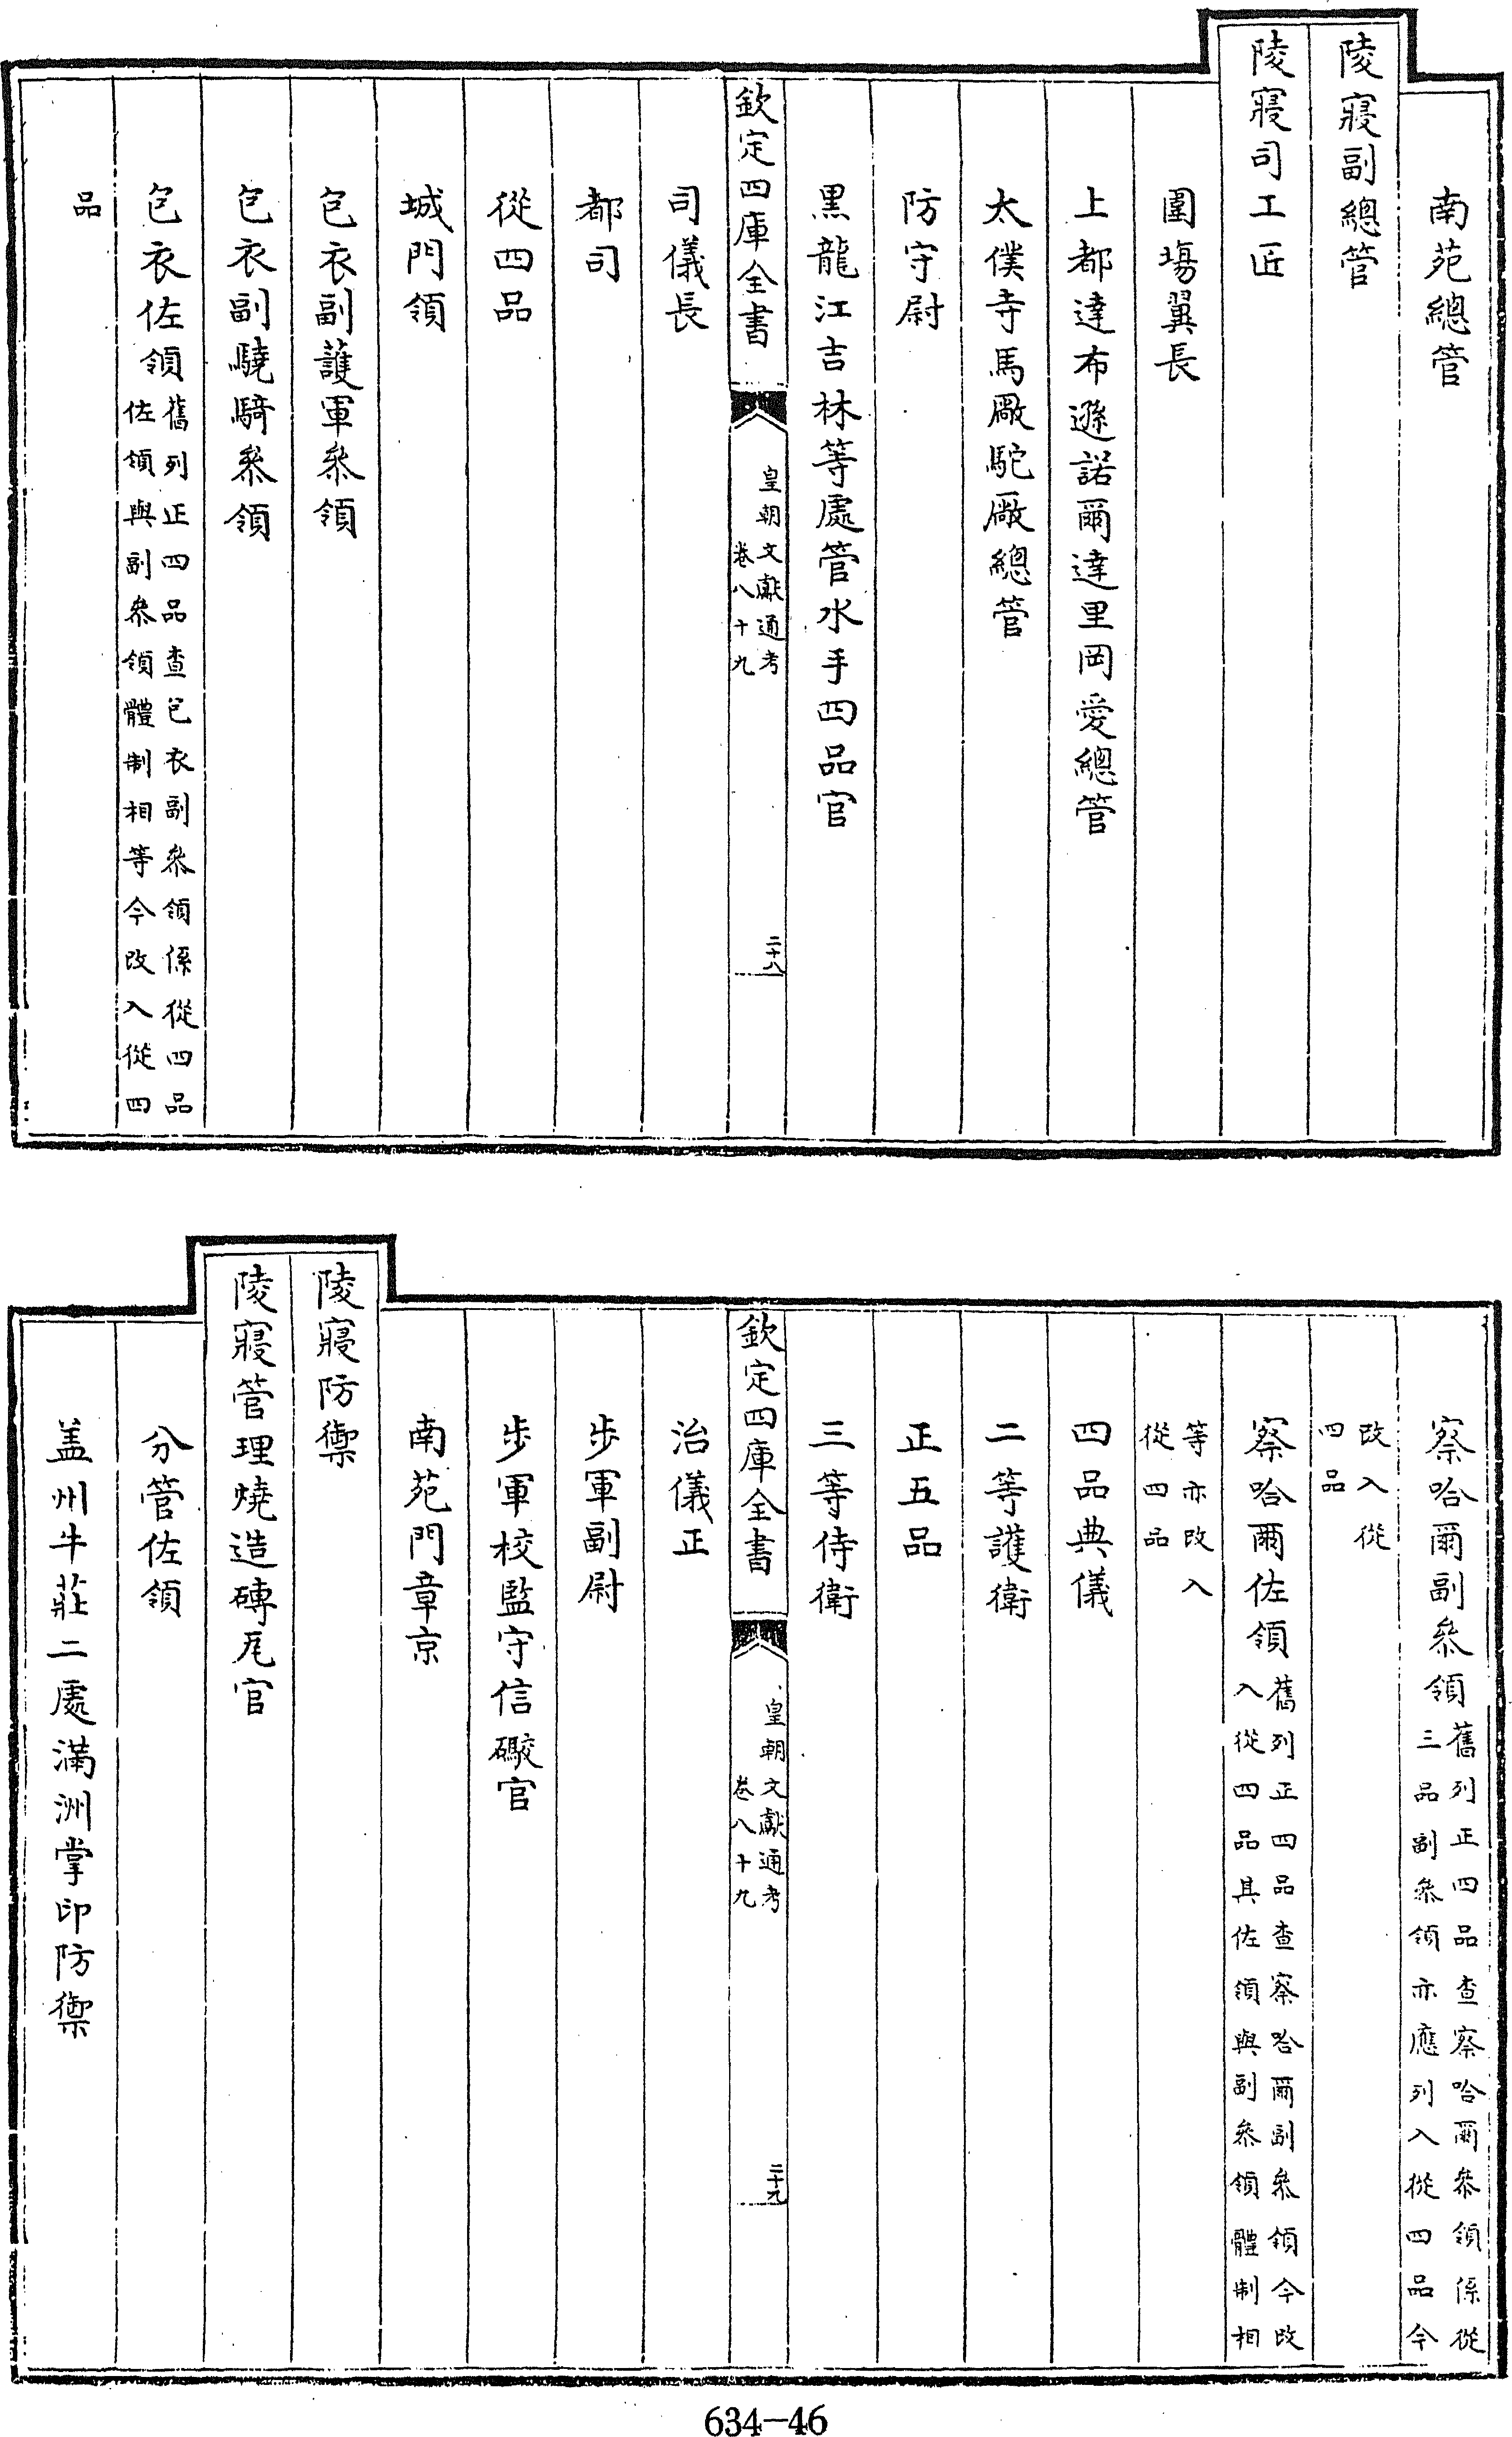 南苑總管
陵寢副總管
陵寢司工匠
圍場翼長
上都達布遜諾爾達里岡愛總管
太僕寺馬厰駝厰總管
防守尉
黑龍江吉林等處管水手四品官
欽定四庫全書
皇朝文獻通考
卷八十九
二十八
司儀長
都司
從四品
城門領
包衣副護軍叅領
包衣副驍騎叅領
包衣佐領舊列正四品查包衣副叅領係從四品
佐領與副叅領體制相等今改入從四
品
察哈爾副叅領舊列正四品查察哈爾叅領係從
三品副叅領亦應列入從四品今
改入從
四品
察哈爾佐領舊列正四品查察哈爾副叅領今改
入從四品其佐領與副叅領體制相
等亦改入
從四品
四品典儀
二等護衛
正五品
三等侍衛
欽定四庫全書
皇朝文獻通考
卷八十九
二十九
治儀正
步軍副尉
步軍校監守信礮官
南苑門章京
陵寢防禦
陵寢管理燒造磚瓦官
分管佐領
盖州牛莊二處滿洲掌印防禦
634-46